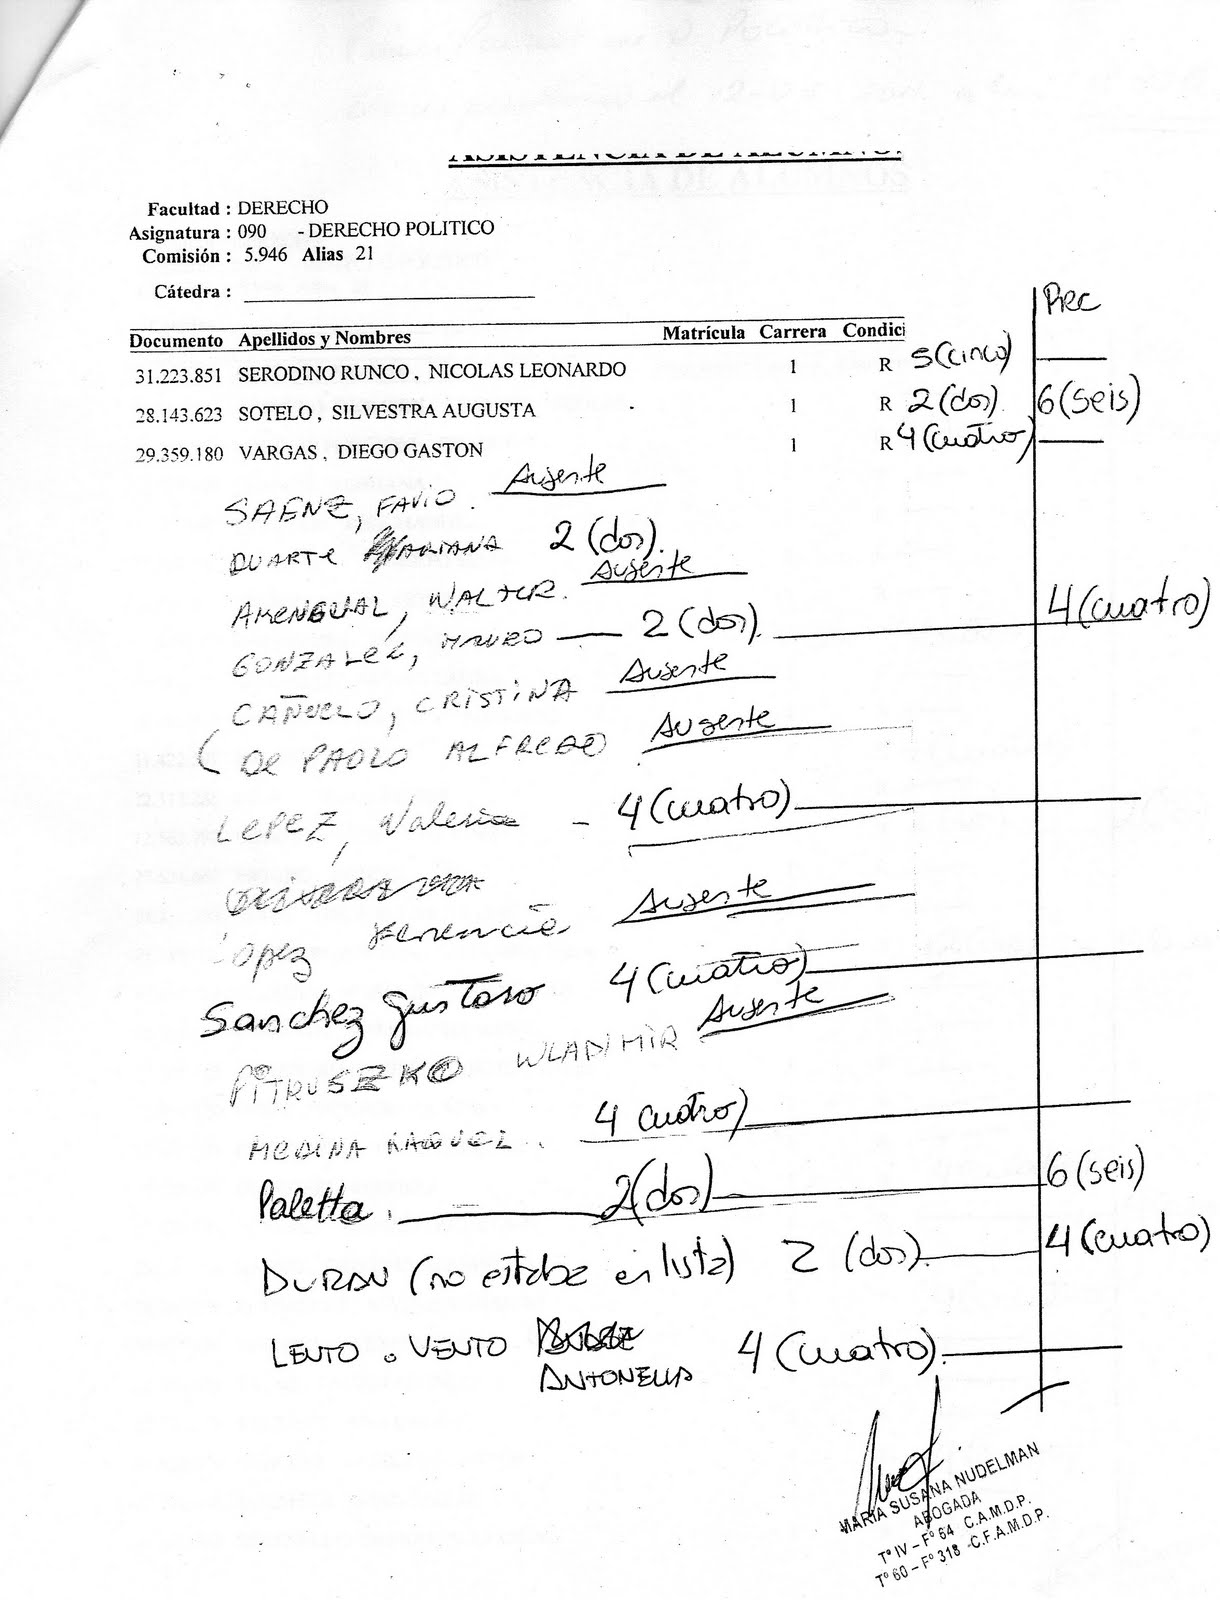 ASISTENCIA DE ALUMNOS
Facultad : DERECHO
Asignatura : 090 - DERECHO POLITICO
Comisión : 5.946 Alias 21
Cátedra :
Rec
Documento Apellidos y Nombres Matrícula Carrera Condici
31.223.851 SERODINO RUNCO , NICOLAS LEONARDO 1 R 5 (cinco)
28.143.623 SOTELO , SILVESTRA AUGUSTA 1 R 2 (dos) 6 (seis)
29.359.180 VARGAS , DIEGO GASTON 1 R 4 (cuatro)
SAENZ, FAVIO. Ausente
DUARTE MARIANA 2 (dos).
AMENGUAL, WALTER. Ausente
GONZALEZ, MAURO — 2 (dos). 4 (cuatro)
CAÑUELO, CRISTINA Ausente
( De PAOLO ALFREDO Ausente
LEPEZ, Valeria - 4 (cuatro)
Lopez Ausente
Sanchez Gustavo 4 (cuatro)
PITRUSZKO WLADIMIR Ausente
MEDINA RAQUEL. 4 cuatro)
Paletta. 2 (dos) 6 (seis)
DURAN (no estaba en lista) 2 (dos). 4 (cuatro)
LENTO . VENTO
ANTONELLA 4 (cuatro).
MARIA SUSANA NUDELMAN
ABOGADA
T° IV – F° 64 C.A.M.D.P.
T° 60 – F° 318 -C.F.A.M.D.P.